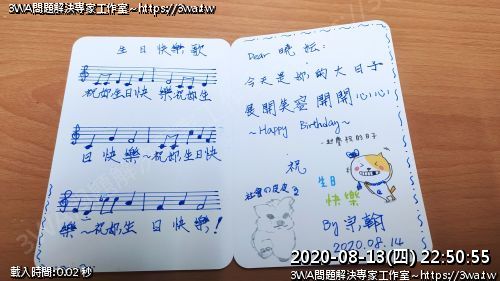 3WA問題解決專家工作室~https://3wa.tw
生日快樂歌
祝妳生日快 樂祝妳生
日 快 樂~祝妳生日快
樂~祝妳生 日 快 樂!
Dear 曉妘:
今天是妳的大日子
展開笑容 開開心心
~Happy Birthday~
祝
生日
快樂
By 宗翰
2020.08.14
2020-08-13(四) 22:50:55
載入時間:0.02 秒
3WA問題解決專家工作室~https://3wa.tw